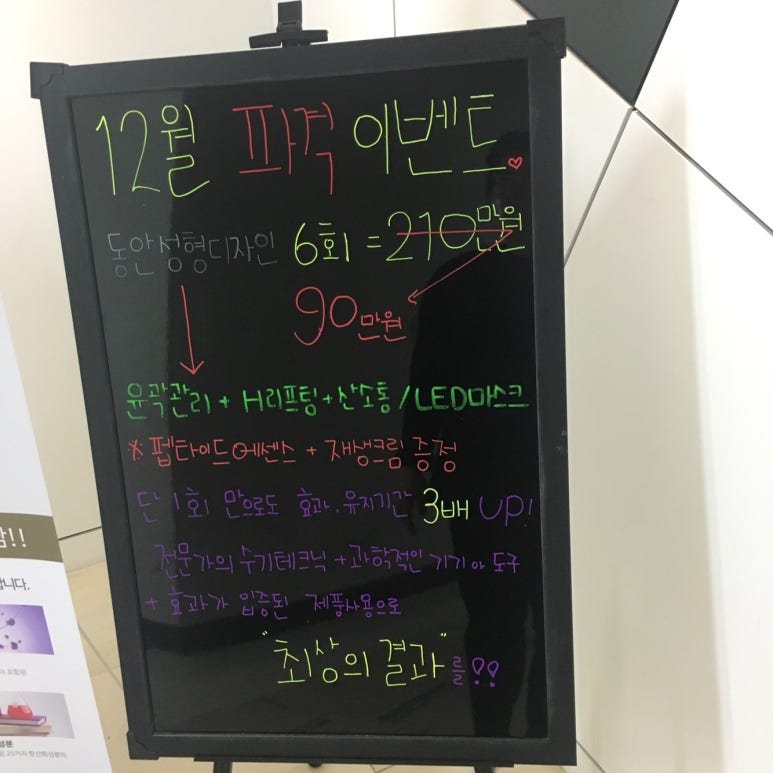 12월 파격 이벤트
동안성형디자인 6회 = 210만원
90만원
윤곽관리 + H리프팅 + 산소통 / LED마스크
※ 펩타이드에센스 + 재생크림 증정
단 1회 만으로도 효과. 유지기간 3배 UP!
전문가의 수기테크닉 + 과학적인 기기와 도구
+ 효과가 입증된 제품사용으로
"최상의 결과"를!!
합!!
합니다.
성분